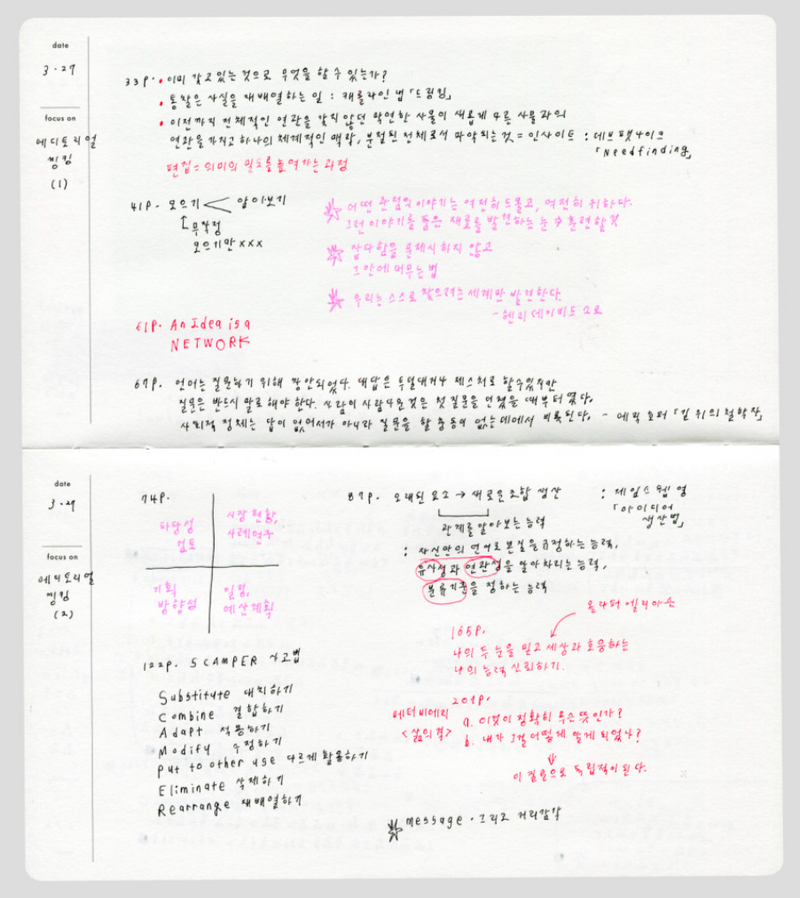 date
3·29
focus on
에디토리얼
씽킹
(1)
33p. • 이미 갖고 있는 것으로 무엇을 할 수 있는가?
• 통찰은 사실을 재배열하는 일 : 캐롤라인 냅 「드링킹」
• 이전까지 전체적인 연관을 갖지 않던 막연한 사물이 새롭게 다른 사물과의
연관을 가지고 하나의 체계적인 맥락, 분절된 전체로서 파악되는 것 = 인사이트 : 데브 팻나이크
「Needfinding」
편집 = 의미의 밀도를 높여가는 과정
41p. 모으기 < 알아보기
무작정
모으기만 xxx
어떤 관점의 이야기는 여전히 드물고, 여전히 귀하다.
그런 이야기를 품은 재료를 발견하는 눈 훈련할 것
잡다함을 문제시하지 않고
그 안에 머무는 법
우리는 스스로 찾으려는 세계만 발견한다.
- 헨리 데이비드 소로
61p. An Idea is a
NETWORK
67p. 언어는 질문하기 위해 창안되었다. 대답은 투덜대거나 제스처로 할 수 있지만
질문은 반드시 말로 해야 한다. 사람이 사람다운 것은 첫 질문을 던졌을 때부터였다.
사회적 정체는 답이 없어서가 아니라 질문을 할 충동이 없는 데에서 비롯된다. - 에릭 호퍼 「길 위의 철학자」
date
3·29
focus on
에디토리얼
씽킹
(2)
74p.
타당성
검토
시장 현황,
사례 연구
기획
방향성
일정,
예산 계획
87p. 오래된 요소 → 새로운 조합 생산 : 제임스 웹 영
「아이디어
생산법」
관계를 알아보는 능력
: 자신만의 언어로 본질을 규정하는 능력,
유사성과 연관성을 알아차리는 능력,
분류 기준을 정하는 능력
올라퍼 엘리아슨
165p.
나의 두 눈을 믿고 세상과 호응하는
나의 능력 신뢰하기.
122p. SCAMPER 사고법
Substitute 대치하기
Combine 결합하기
Adapt 적용하기
Modify 수정하기
Put to other use 다르게 활용하기
Eliminate 삭제하기
Rearrange 재배열하기
201p.
피터 비에리
<삶의 격>
a. 이것이 정확히 무슨 뜻인가?
b. 내가 그걸 어떻게 알게 되었나?
이 질문으로 독립적이 된다.
message · 그리고 거리감각